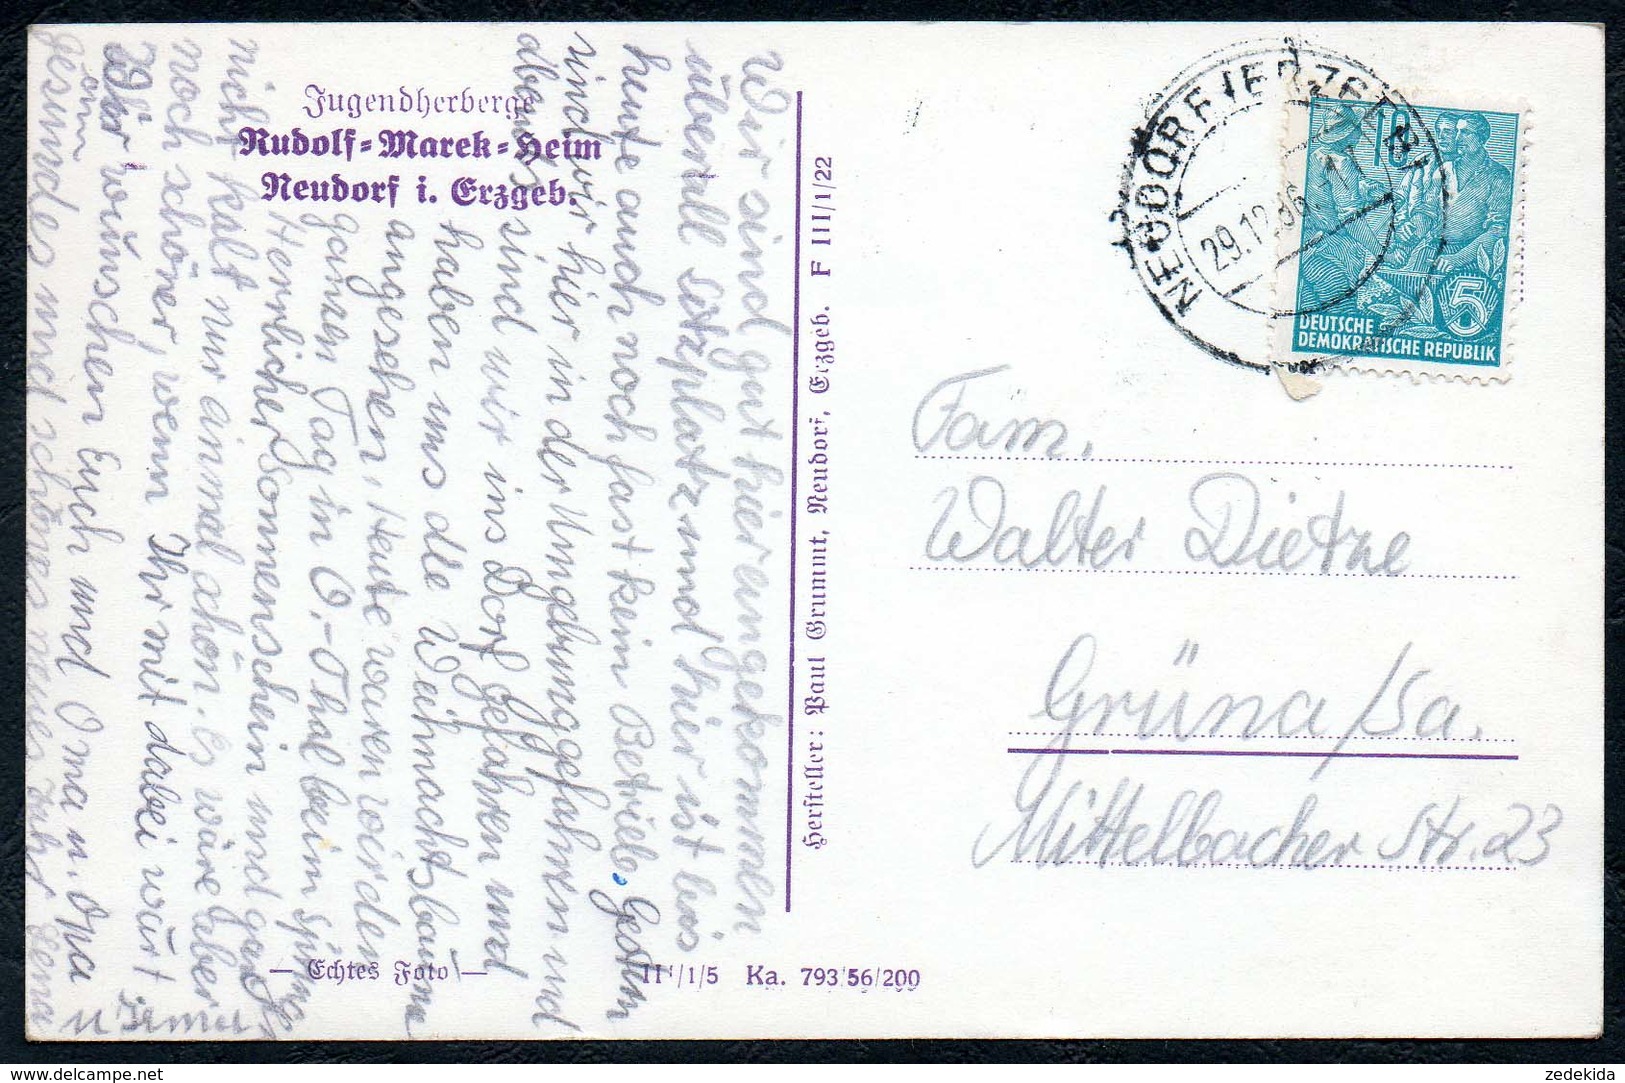 Jugendherberge
Rudolf-Marek-Heim
Neudorf i. Erzgeb.
Wir sind gut hier angekommen
überall sitzplatz und hier ist bis
heute auch noch fast kein Betrieb. Gestern
sind wir hier in der Umgebung gefahren und
sind wir ins Dorf gefahren und
haben uns die Weihnachtsbäume
angesehen, Heute waren wir den
ganzen Tag in O.-Thal beim
Herrlicher Sonnenschein und gar
nicht kalt nur einmal schön. Es wäre aber
noch schöner, wenn Ihr mit dabei wärt
Wir wünschen Euch und Oma u. Opa
gesundes und schönes neues Jahr
— Echtes Foto —
II/1/5 Ka. 793/56/200
Hersteller: Paul Grummt, Neudorf, Erzgeb. F III/1/22
NEUDORF (ERZGEB)
29.12.56
10
5
DEUTSCHE
DEMOKRATISCHE REPUBLIK
Fam.
Walter Dietze
Grüna/Sa.
Mittelbacher Str. 23
zedekida